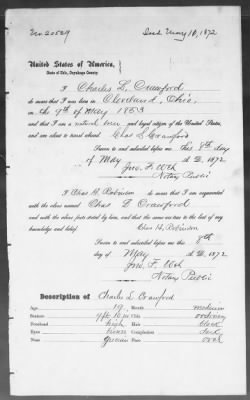 No. 20529 Issd May 10, 1872
United States of America,
State of Ohio, Cuyahoga County.
I Charles L. Crawford
do swear that I was born in Cleveland, Ohio,
on the 9th of May 1853
and that I am a natural born and legal citizen of the United States,
and am about to travel abroad. Chas L Crawford
Sworn to and subscribed before me this 8th day
of May A.D. 1872.
Jno. F.
Notary Public
I Chas H. Robinson do swear that I am acquainted
with the above named Chas L Crawford
and with the above facts stated by him, and that the same are true to the best of my
knowledge and belief. Chas H, Robinson
Sworn to and subscribed before me this 8th
day of May A.D. 1872.
Jno. F.
Notary Public
Description of Charles L Crawford
Age 19 Mouth medium
Stature Chin ordinary
Forehead high Hair black
Eyes Complexion dark
Nose Face oval